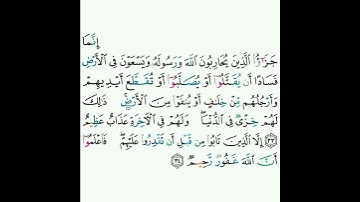 إِنَّمَا
جَزَٰٓؤُا۟ ٱلَّذِينَ يُحَارِبُونَ ٱللَّهَ وَرَسُولَهُۥ وَيَسْعَوْنَ فِى ٱلْأَرْضِ
فَسَادًا أَن يُقَتَّلُوٓا۟ أَوْ يُصَلَّبُوٓا۟ أَوْ تُقَطَّعَ أَيْدِيهِمْ
وَأَرْجُلُهُم مِّنْ خِلَٰفٍ أَوْ يُنفَوْا۟ مِنَ ٱلْأَرْضِ ۚ ذَٰلِكَ
لَهُمْ خِزْىٌ فِى ٱلدُّنْيَا ۖ وَلَهُمْ فِى ٱلْءَاخِرَةِ عَذَابٌ عَظِيمٌ
٣٣ إِلَّا ٱلَّذِينَ تَابُوا۟ مِن قَبْلِ أَن تَقْدِرُوا۟ عَلَيْهِمْ ۖ فَٱعْلَمُوٓا۟
أَنَّ ٱللَّهَ غَفُورٌ رَّحِيمٌ ٣٤